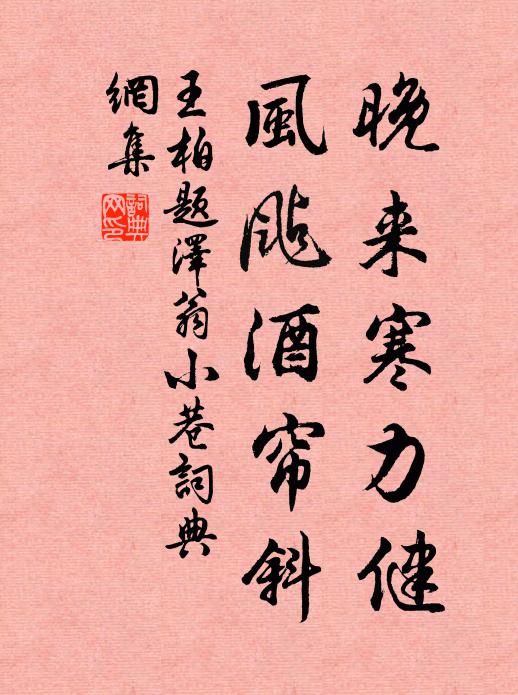 晚来寒力健
風颭酒帘斜
王柏題澤翁小巷詞典
網集
詞典網印